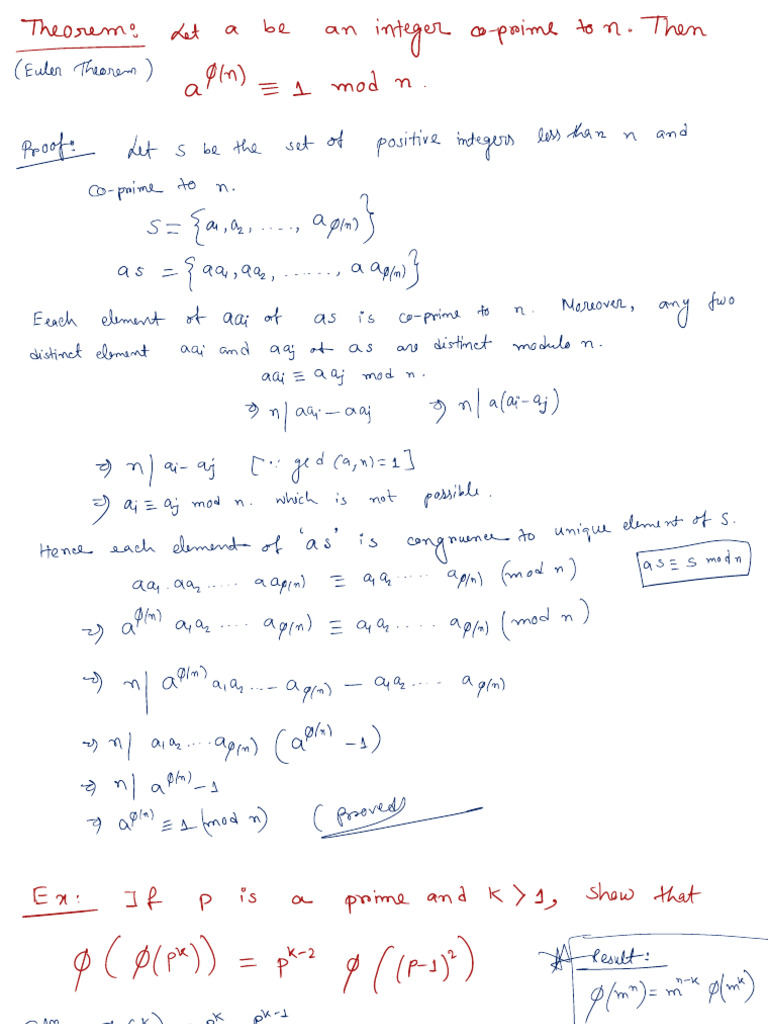 Theorem: Let a be an integer co-prime to n. Then
(Euler Theorem)
a^φ(n) ≡ 1 mod n.
Proof: Let s be the set of positive integers less than n and
co-prime to n.
S = {a₁, a₂, ...., a_φ(n)}
as = {aa₁, aa₂, ......, a a_φ(n)}
Eeach element of aaᵢ of as is co-prime to n. Moreover, any two
distinct element aaᵢ and aaⱼ of as are distinct modulo n.
aaᵢ ≡ aaⱼ mod n.
⇒ n | aaᵢ - aaⱼ ⇒ n | a(aᵢ - aⱼ)
⇒ n | aᵢ - aⱼ [∵ gcd (a,n)=1]
⇒ aᵢ ≡ aⱼ mod n. which is not possible.
Hence each element of 'as' is congruence to unique element of S.
aa₁. aa₂ ..... a a_φ(n) ≡ a₁ a₂ ..... a_φ(n) (mod n)
as ≡ s mod n
⇒ a^φ(n) a₁a₂ ..... a_φ(n) ≡ a₁a₂ ..... a_φ(n) (mod n)
⇒ n | a^φ(n) a₁a₂ .... a_φ(n) - a₁a₂ .... a_φ(n)
⇒ n | a₁a₂ .... a_φ(n) (a^φ(n) - 1)
⇒ n | a^φ(n) - 1
⇒ a^φ(n) ≡ 1 (mod n) (Proved)
Ex: If p is a prime and k > 1, show that
φ(φ(p^k)) = p^(k-2) φ((p-1)²)
Result:
φ(m^n) = m^(n-k) φ(m^k)